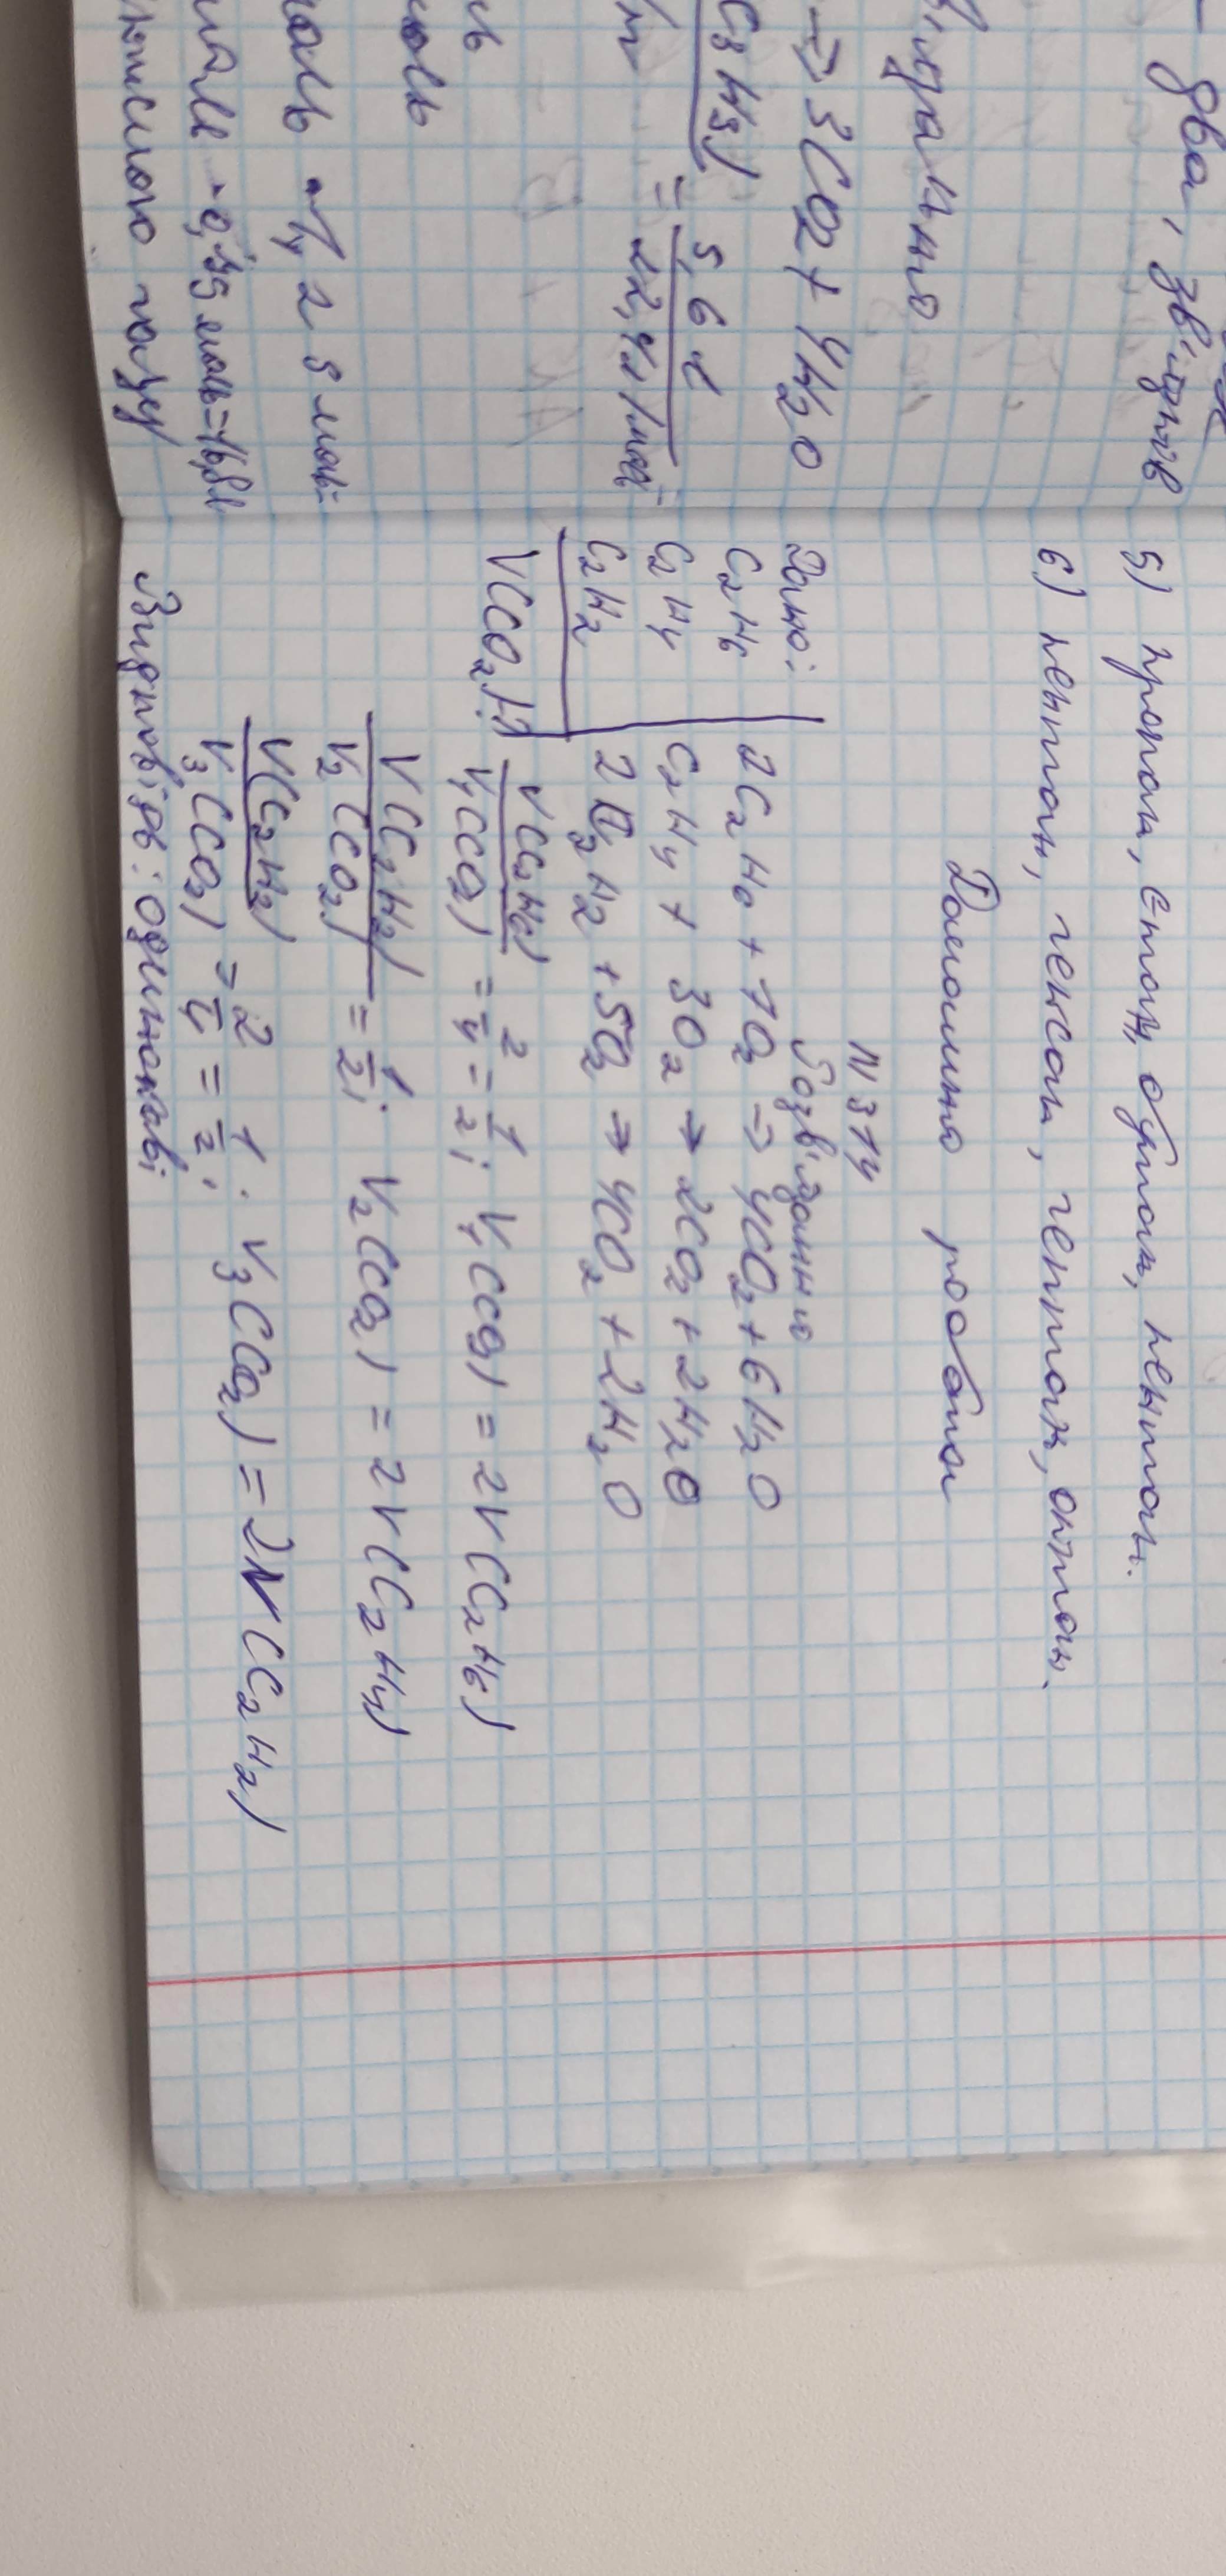 два, звідків
відданно
→ 3CO2 + 4H2O
C3H8) = 5,6 л
22,4 л/моль
ль
моль
моль · 1,25 моль =
0,75 моль = 16,8 л
кислого газу
5) пропан, етан, бутан, пентан.
6) пентан, гексан, гептан, октан.
Домашня робота
N 314
Дано: Розв'язання
C2H6 2C2H6 + 7O2 → 4CO2 + 6H2O
C2H4 C2H4 + 3O2 → 2CO2 + 2H2O
C2H2 2C2H2 + 5O2 → 4CO2 + 2H2O
V(CO2)-?
V(C2H6) / V1(CO2) = 2/4 = 1/2; V1(CO2) = 2V(C2H6)
V(C2H2) / V2(CO2) = 1/2; V2(CO2) = 2V(C2H4)
V(C2H2) / V3(CO2) = 2/4 = 1/2; V3(CO2) = 2V(C2H2)
Відповідь: однакові